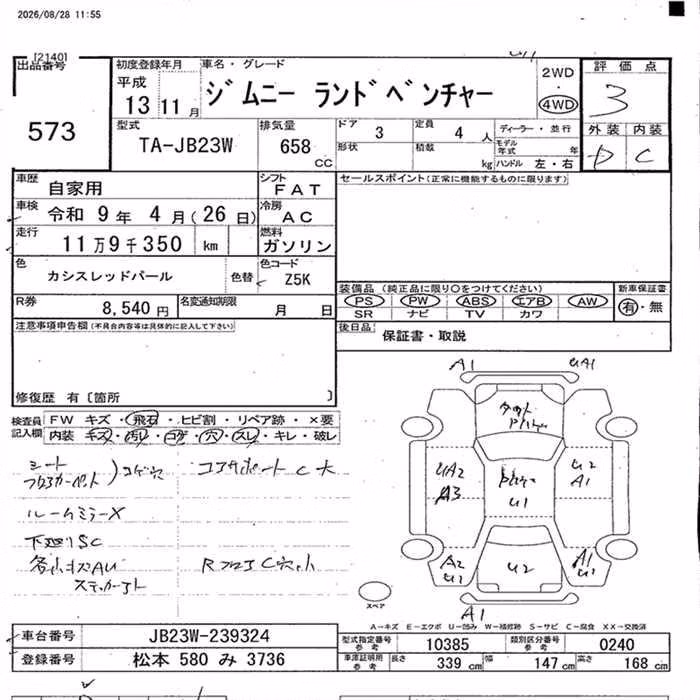 2026/08/28 11:55
[2140]
出品番号
573
初度登録年月
平成
13 11 月
車名・グレード
ジムニー ランドベンチャー
2WD
4WD
評価点
3
外装 内装
D C
型式
TA-JB23W
排気量
658 CC
ドア 3
定員 4 人
ディーラー・並行
形状
積載 kg
モデル年式 年
ハンドル 左・右
車歴 自家用
シフト FAT
セールスポイント(正常に機能するものに限ります)
車検 令和 9 年 4 月(26 日)
冷房 AC
走行 11 万 9 千 350 km
燃料 ガソリン
色 カシスレッドパール 色替
色コード Z5K
装備品(純正品に限り○をつけてください)
新車保証書
PS PW ABS エアB AW
有・無
SR ナビ TV カワ
R券 8,540 円
名変通知期限 月 日
後日品 保証書・取説
注意事項申告欄(不具合内容等は具体的に記入して下さい)
修復歴 有〔箇所 〕
検査員記入欄
FW キズ・飛石・ヒビ割・リペア跡・×要
内装 キズ・汚レ・コゲ・穴・スレ・キレ・破レ
シート
フロアカーペット
コゲ穴
コアサポート C 大
ルームミラーX
下廻りSC
各小キズAU
ステッカーアト
RフロアC穴小
A1
UA1
UA2
A3
U1
U2
A1
A2
U1
U2
A1
U1
A1
スペア
A-キズ E-エクボ U-凹み W-補修跡 S-サビ C-腐食 XX-交換済
車台番号 JB23W-239324
登録番号 松本 580 み 3736
型式指定番号 参考 10385
類別区分番号 参考 0240
車庫証明用 参考 長さ 339 cm 幅 147 cm 高さ 168 cm